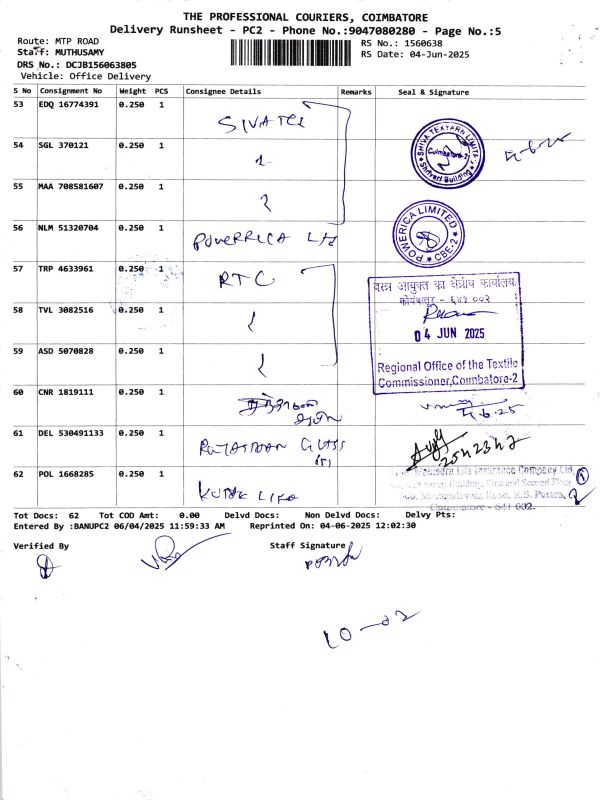 THE PROFESSIONAL COURIERS, COIMBATORE
Delivery Runsheet - PC2 - Phone No.:9047080280 - Page No.:5
Route: MTP ROAD
Staff: MUTHUSAMY
DRS No.: DCJB156063805
Vehicle: Office Delivery
RS No.: 1560638
RS Date: 04-Jun-2025
S No Consignment No Weight PCS Consignee Details Remarks Seal & Signature
53 EDQ 16774391 0.250 1
SIVA TEX
54 SGL 370121 0.250 1
SHIVA TEXYARN LIMITED
Coimbatore-2
Shrivari Building
55 MAA 708581607 0.250 1
56 NLM 51320704 0.250 1 POWERRICA Ltd
POWERICA LIMITED
CBE-2
57 TRP 4633961 0.250 1 RTC
वस्त्र आयुक्त का क्षेत्रीय कार्यालय
कोयंबत्तूर - ६४१ ००२
58 TVL 3082516 0.250 1
04 JUN 2025
59 ASD 5070828 0.250 1
Regional Office of the Textile
Commissioner,Coimbatore-2
60 CNR 1819111 0.250 1
4.6.25
61 DEL 530491133 0.250 1 RAJASTHAN GLASS
2542342
62 POL 1668285 0.250 1 KOTAK LIFE
Mahindra Life Insurance Company Ltd,
Building, First and Second Floor
Mettupalayam Road, R.S. Puram,
Coimbatore - 641 002.
Tot Docs: 62 Tot COD Amt: 0.00 Delvd Docs: Non Delvd Docs: Delvy Pts:
Entered By :BANUPC2 06/04/2025 11:59:33 AM Reprinted On: 04-06-2025 12:02:30
Verified By Staff Signature
10-02